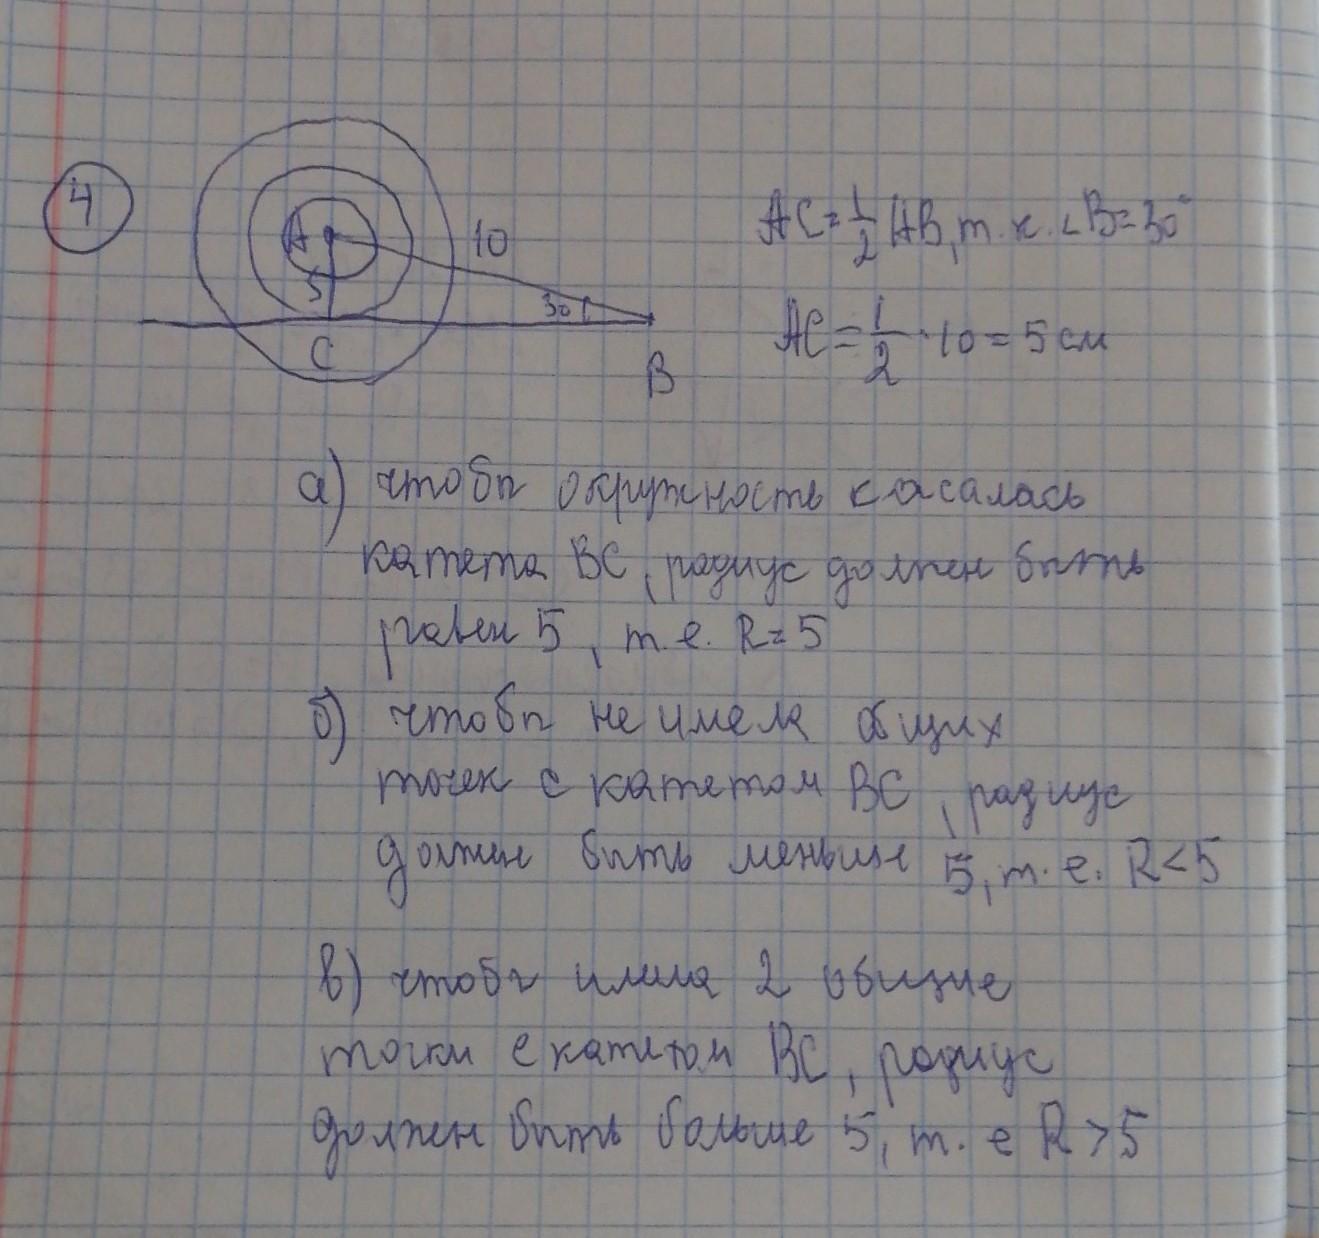 4
A
5
10
30
C
B
AC = 1/2 AB, т. к. ∠B = 30°
AC = 1/2 · 10 = 5 см
а) чтобы окружность касалась
катета BC, радиус должен быть
равен 5, т. е. R = 5
б) чтобы не имела общих
точек с катетом BC, радиус
должен быть меньше 5, т. е. R < 5
в) чтобы имела 2 общие
точки с катетом BC, радиус
должен быть больше 5, т. е R > 5